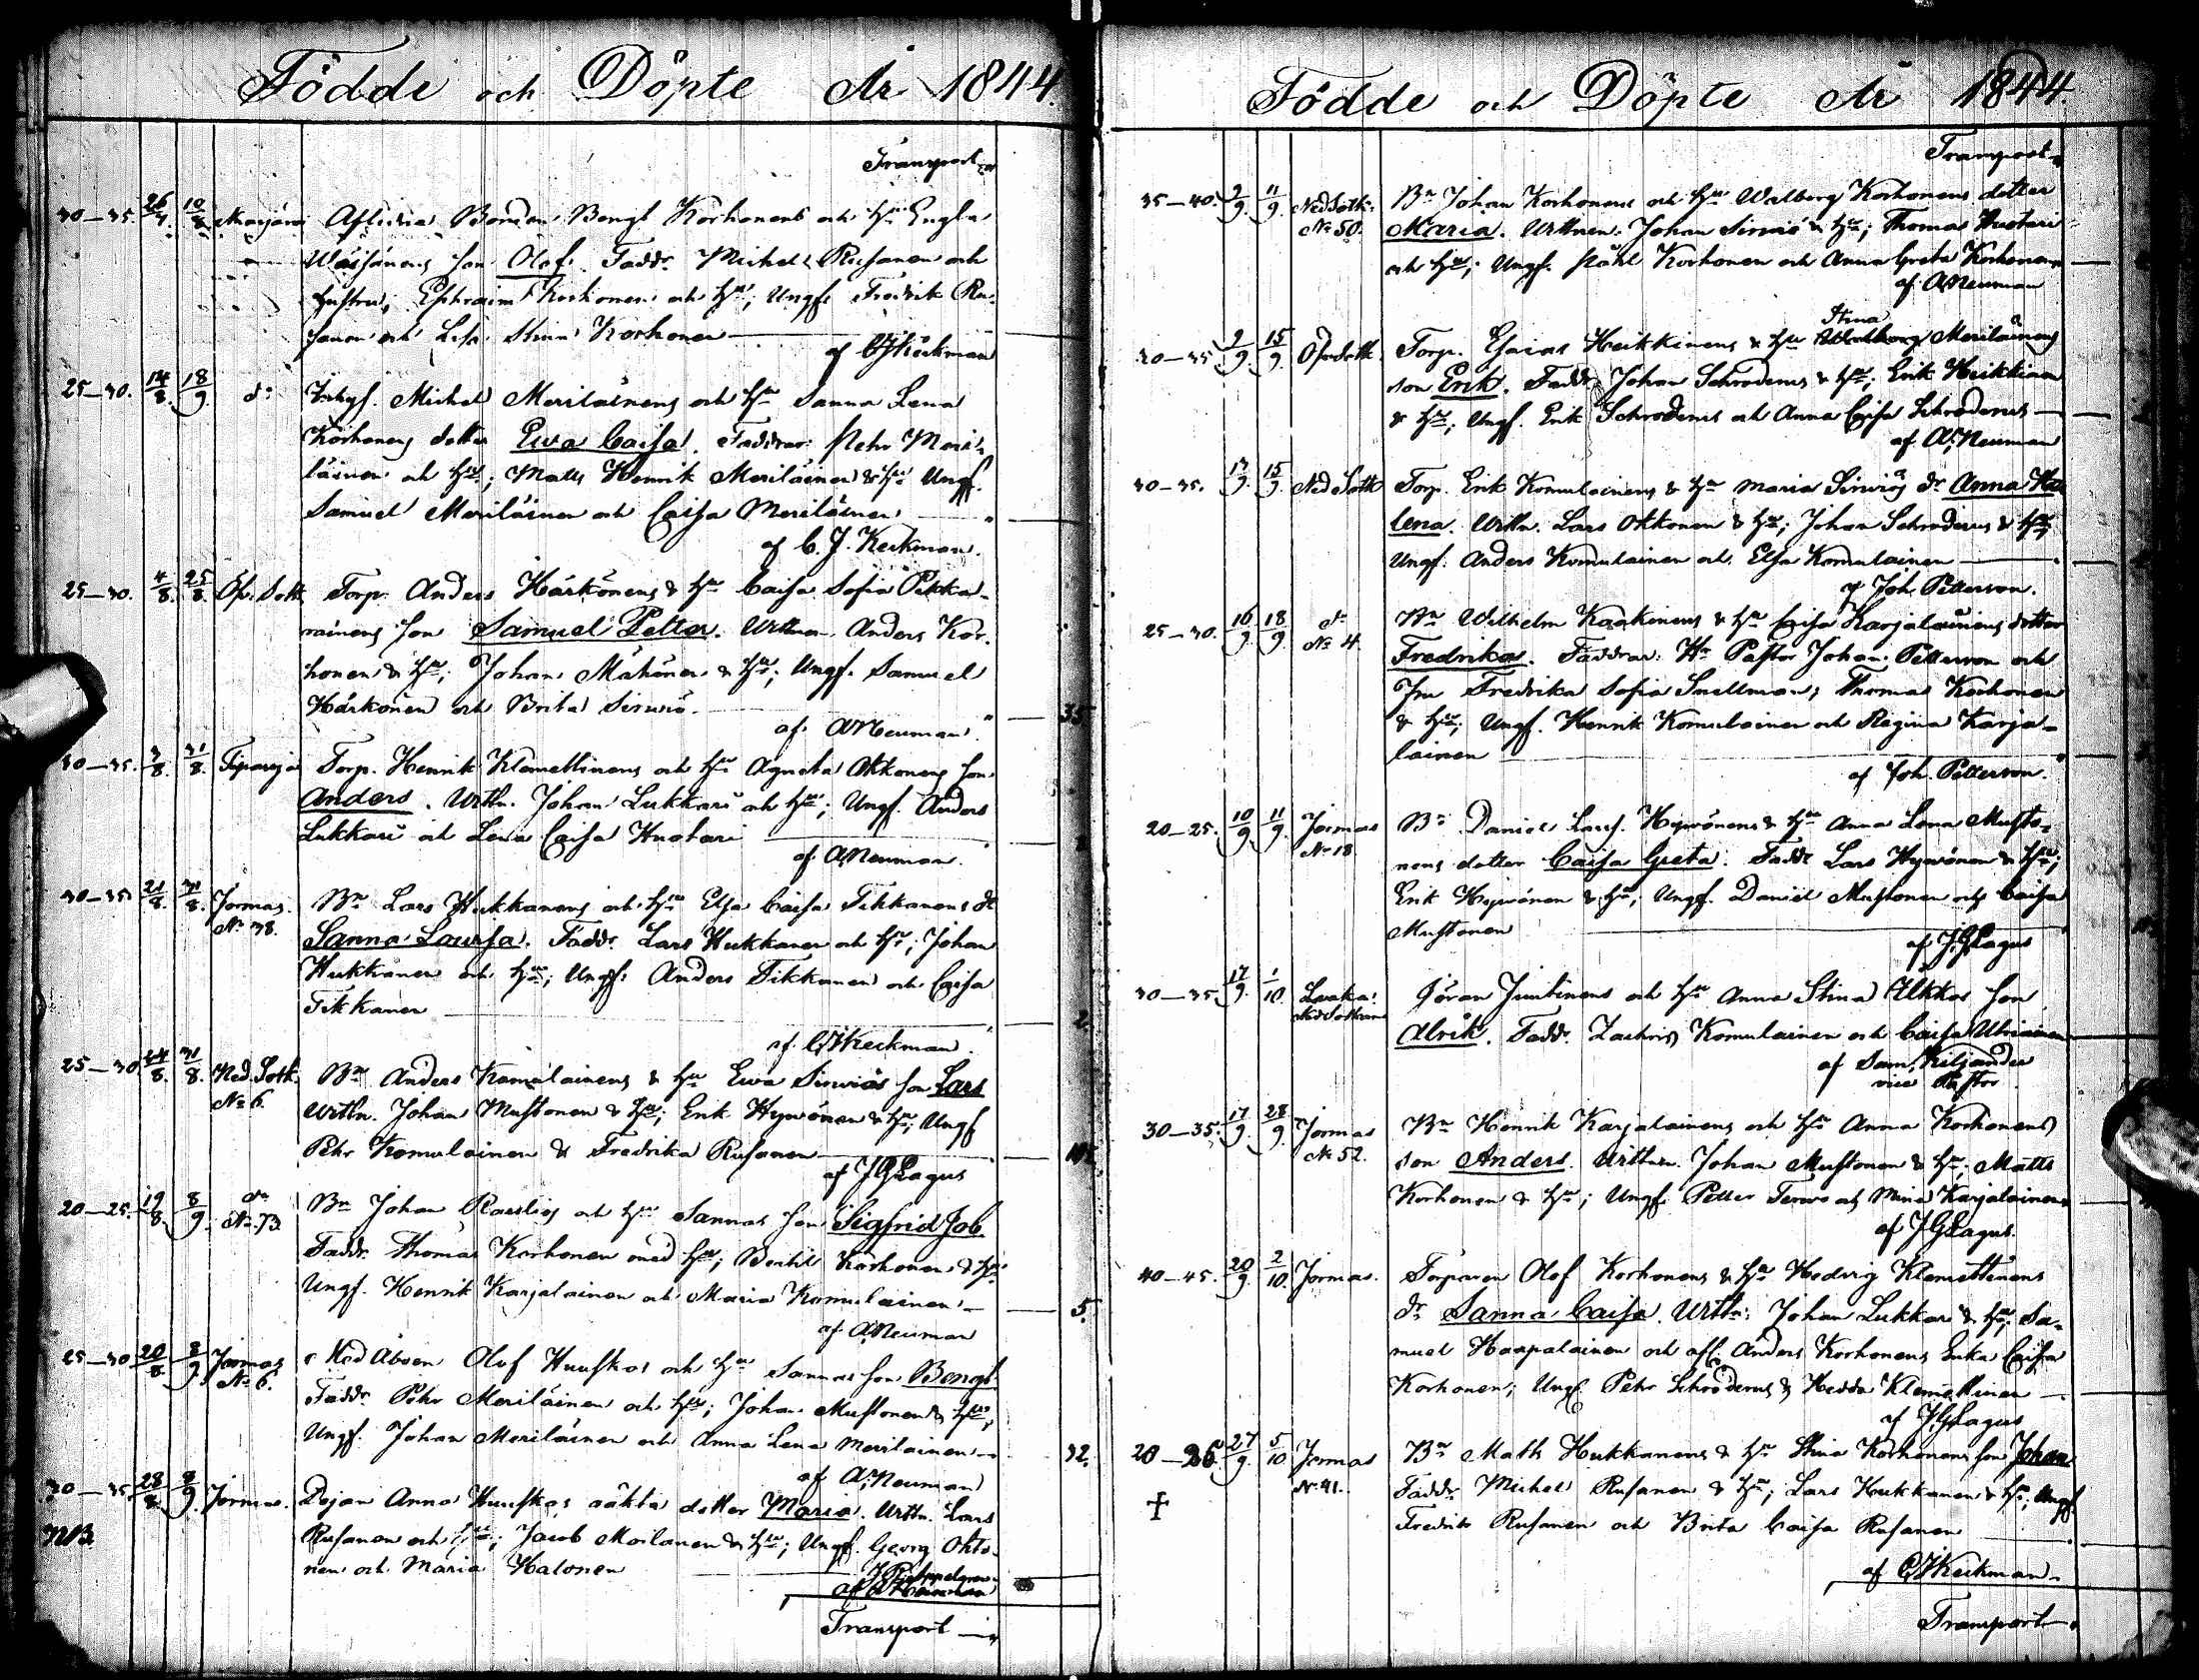 Födde och Döpte År 1844.
Transport
30—35. 26/7. 10/8. Bonden Bengt Korhonens och hu Engla
son Olof. Faddr. Michel Rusanen och
hustru; Ephraim Korhonen och hu; Ungf. Fredrik Ru-
sanen och Lisa Stina Korhonen
af CJKeckman
25—30. 14/8. 18/9. do Michel Meriläinens och hu Sanna Lena
Korhonens dotter Ewa Caisa. Faddrar: Pehr Meri-
läinen och hu; Matts Henrik Meriläinen & hu Ungf.
Samuel Meriläinen och Caisa Meriläinen
af C. J. Keckman.
25—30. 4/8. 25/8. Öf. Sotk. Torp. Anders Härkönens & hu Caisa Sofia Pikka-
rainens son Samuel Petter. Wittnen. Anders Kor-
honen & hu; Johan Mähönen & hu; Ungf. Samuel
Härkönen och Brita Sirwiö.
af ANeuman.
35
30—35. 3/8. 31/8. Tipasoja Torp. Henrik Klemettinens och hu Agneta Okkonens son
Anders. Wittn. Johan Lukkari och hu; Ungf. Anders
Lukkari och Lena Caisa Huotari
af ANeuman.
30—35 21/8. 31/8. Jormas No 38. Bn Lars Hukkanens och hu Elsa Caisa Tikkanens dr
Sanna Lovisa. Faddr. Lars Hukkanen och hu; Johan
Hukkanen och hu; Ungf. Anders Tikkanen och Caisa
Tikkanen
2.
af CJKeckman.
25—30 24/8. 31/8. Ned. Sotk. No 6. Bn Anders Komulainens & hu Ewa Sirwiös son Lars
Wittn. Johan Mustonen & hu; Erik Hywönen & hu; Ungf
Pehr Komulainen & Fredrika Rusanen
af JGLagus
20—25. 19/8. 8/9. do No 73. Bn Johan och hu Sannas son Sigfrid Job.
Faddr. Thomas Korhonen med hu; Bertil Korhonen & hu
Ungf. Henrik Karjalainen och Maria Komulainen.
5.
af ANeuman
25—30 20/8. 8/9. Jormas No 6. Olof Huuskos och hu Sannas son Bengt
Faddr. Pehr Meriläinen och hu; Johan Mustonen & hu;
Ungf. Johan Meriläinen och Anna Lena Meriläinen
32.
af A,Neuman
30—35 28/8. 8/9. Jormas. Pigan Anna Huuskos oäkta dotter Maria. Wittn. Lars
NB. Rusanen och hu; Jacob Moilanen & hu; Ungf. Georg Okko-
nen och Maria Halonen
Transport
Födde och Döpte År 1844.
Transport
35—40. 9/9. 11/9. Ned Sotk: No 50. Bn Johan Korhonens och hu Walborg Korhonens dotter
Maria. Wittnen. Johan Sirwiö & hu; Thomas Huotari
och hu; Ungf. Påhl Korhonen och Anna Greta Korhonen
af ANeuman
Stina
30—35 9/9. 15/9. Öfv Sotk. Torp. Esaias Heikkinens & hu Meriläinens
son Erik. Faddr. Johan Schroderus & hu; Erik Heikkinen
& hu; Ungf. Erik Schroderus och Anna Caisa Schroderus
af A,Neuman
30—35. 13/9. 15/9. Ned Sotk Torp. Erik Komulainens & hu Maria Sirwiös dr Anna He
lena. Wittn. Lars Okkonen & hu; Johan Schroderus & hu;
Ungf. Anders Komulainen och Elsa Komulainen
af Joh. Petterson.
25—30. 16/9. 18/9. do No 4. Bn Wilhelm Kaakinens & hu Caisa Karjalainens dotter
Fredrika. Faddrar: Hr Pastor Johan Petterson och
Fru Fredrika Sofia Snellman; Thomas Korhonen
& hu; Ungf. Henrik Komulainen och Regina Karja-
lainen
af Joh. Petterson.
20—25. 10/9. 11/9. Jormas No 18. Bn Daniel Larss. Hywönens & hu Anna Lena Musto-
nens dotter Caisa Greta. Faddr Lars Hywönen & hu;
Erik Hywönen & hu; Ungf. Daniel Mustonen och Caisa
Mustonen
af JGLagus
30—35. 17/9. 1/10. Göran Juntinens och hu Anna Stina son
Ulrik. Faddr. Zachris Komulainen och Caisa
af Sam. Kiljander
vice Pastor
30—35. 17/9. 28/9. Jormas No 52. Bn Henrik Karjalainens och hu Anna Korhonens
son Anders. Wittnen. Johan Mustonen & hu; Matts
Korhonen & hu; Ungf. Petter Terwo och Mina Karjalainen
af JGLagus.
40—45. 20/9. 2/10. Jormas. Torparen Olof Korhonens & hu Hedvig Klemettinens
dr Sanna Caisa. Wittn: Johan Lukkari & hu; Sa-
muel Haapalainen och afl. Anders Korhonens Enka Caisa
Korhonen; Ungf. Pehr Schroderus & Hedda Klemettinen
af JGLagus
20—25 27/9. 5/10. Jormas No 41. Bn Matts Hukkanens & hu Stina Korhonens son Johan
Faddr. Michel Rusanen & hu; Lars Hukkanen & hu; Ungf.
Fredrik Rusanen och Brita Caisa Rusanen
af CJKeckman
Transport